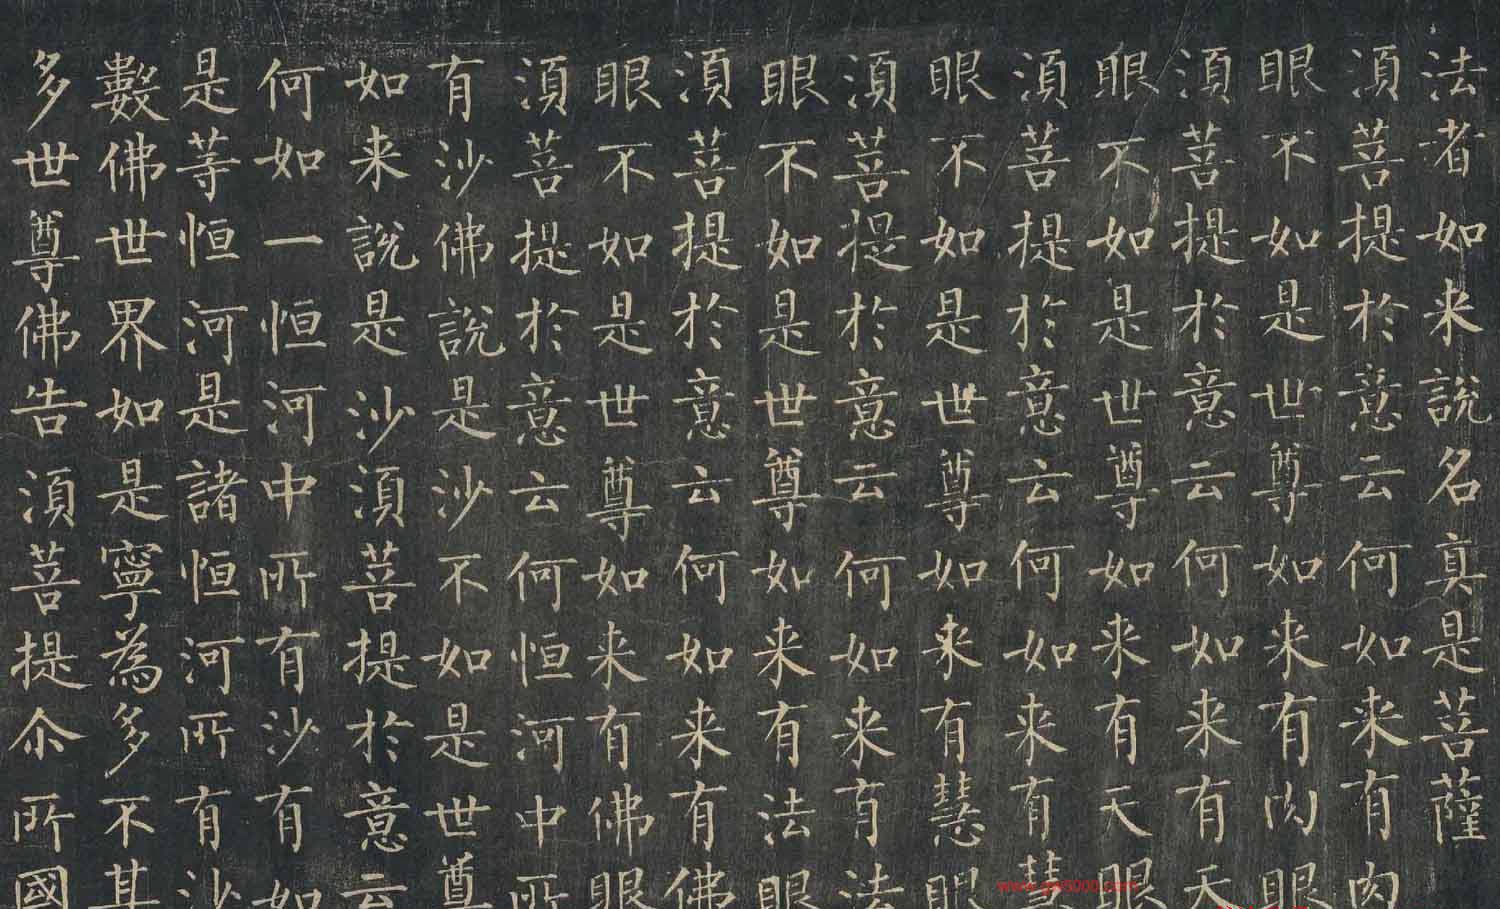 法者如来說名真是菩薩
須菩提於意云何如来有肉
眼不如是世尊如来有肉眼
須菩提於意云何如来有天
眼不如是世尊如来有天眼
須菩提於意云何如来有慧
眼不如是世尊如来有慧眼
須菩提於意云何如来有法
眼不如是世尊如来有法眼
須菩提於意云何如来有佛
眼不如是世尊如来有佛眼
須菩提於意云何恒河中所
有沙佛說是沙不如是世尊
如来說是沙須菩提於意云
何如一恒河中所有沙有如
是等恒河是諸恒河所有沙
數佛世界如是寧為多不甚
多世尊佛告須菩提尒所國
www.gw5000.com